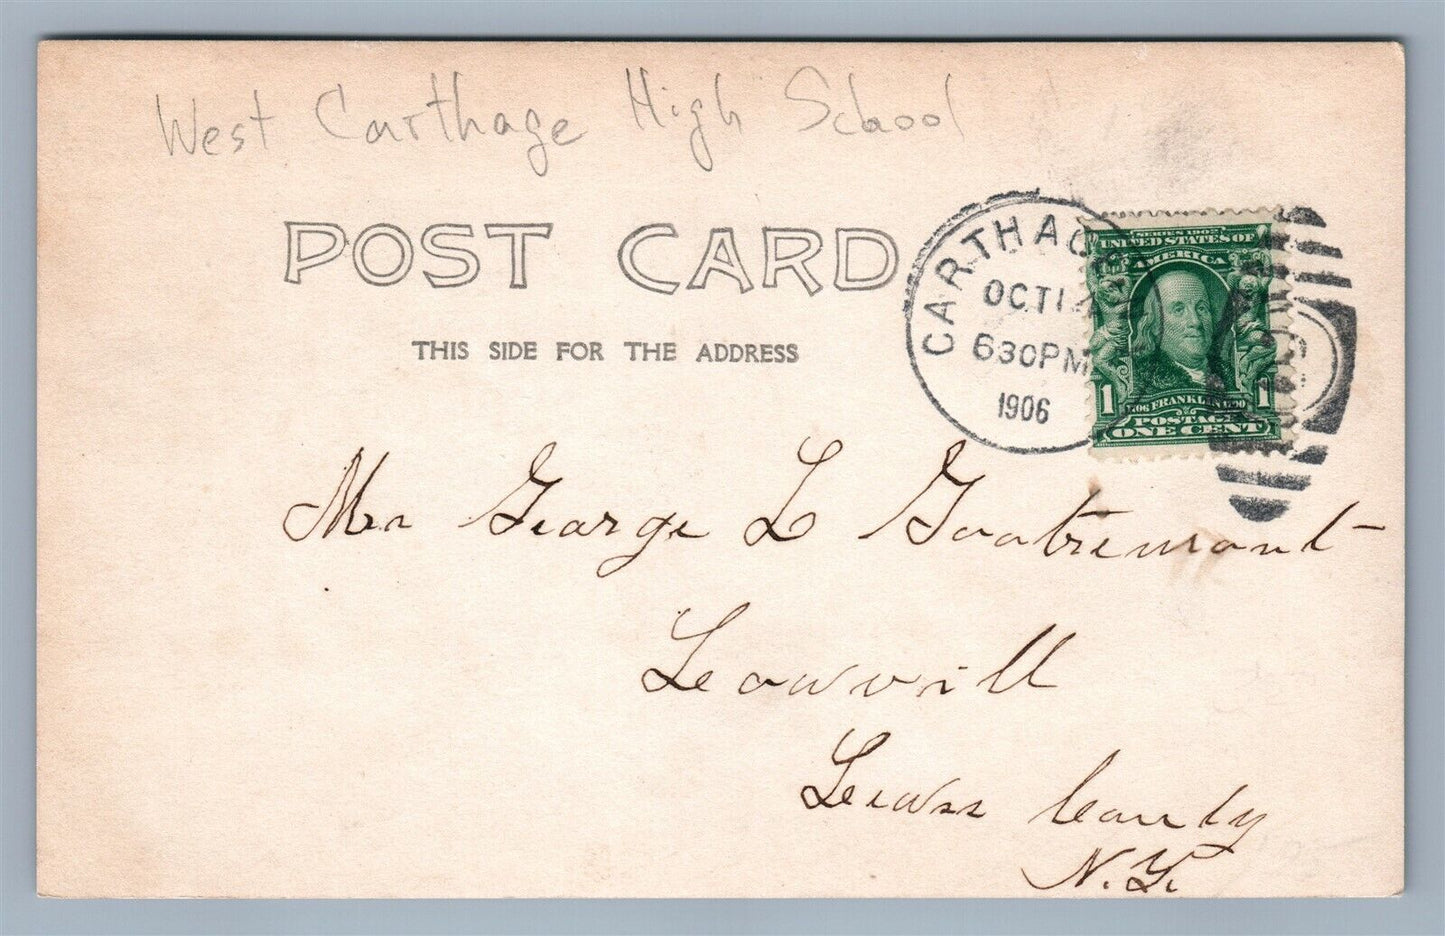 West Carthage High School
POST CARD
THIS SIDE FOR THE ADDRESS
CARTHAGE
OCT 12
630PM
1906
SERIES 1902
UNITED STATES OF
AMERICA
1706 FRANKLIN 1790
1 1
POSTAGE
ONE CENT
Mrs George L Gootremont
Leowvill
Lewss County
N.Y.